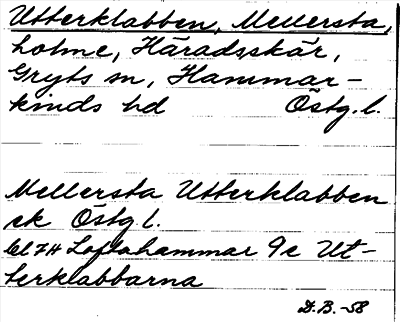 Utterklabben, Mellersta,
holme, Häradsskär,
Gryts sn, Hammar-
kinds hd Östg. l.
Mellersta Utterklabben
sk Östg l.
Loftahammar 9c Ut-
terklabbarna
D.B. -58